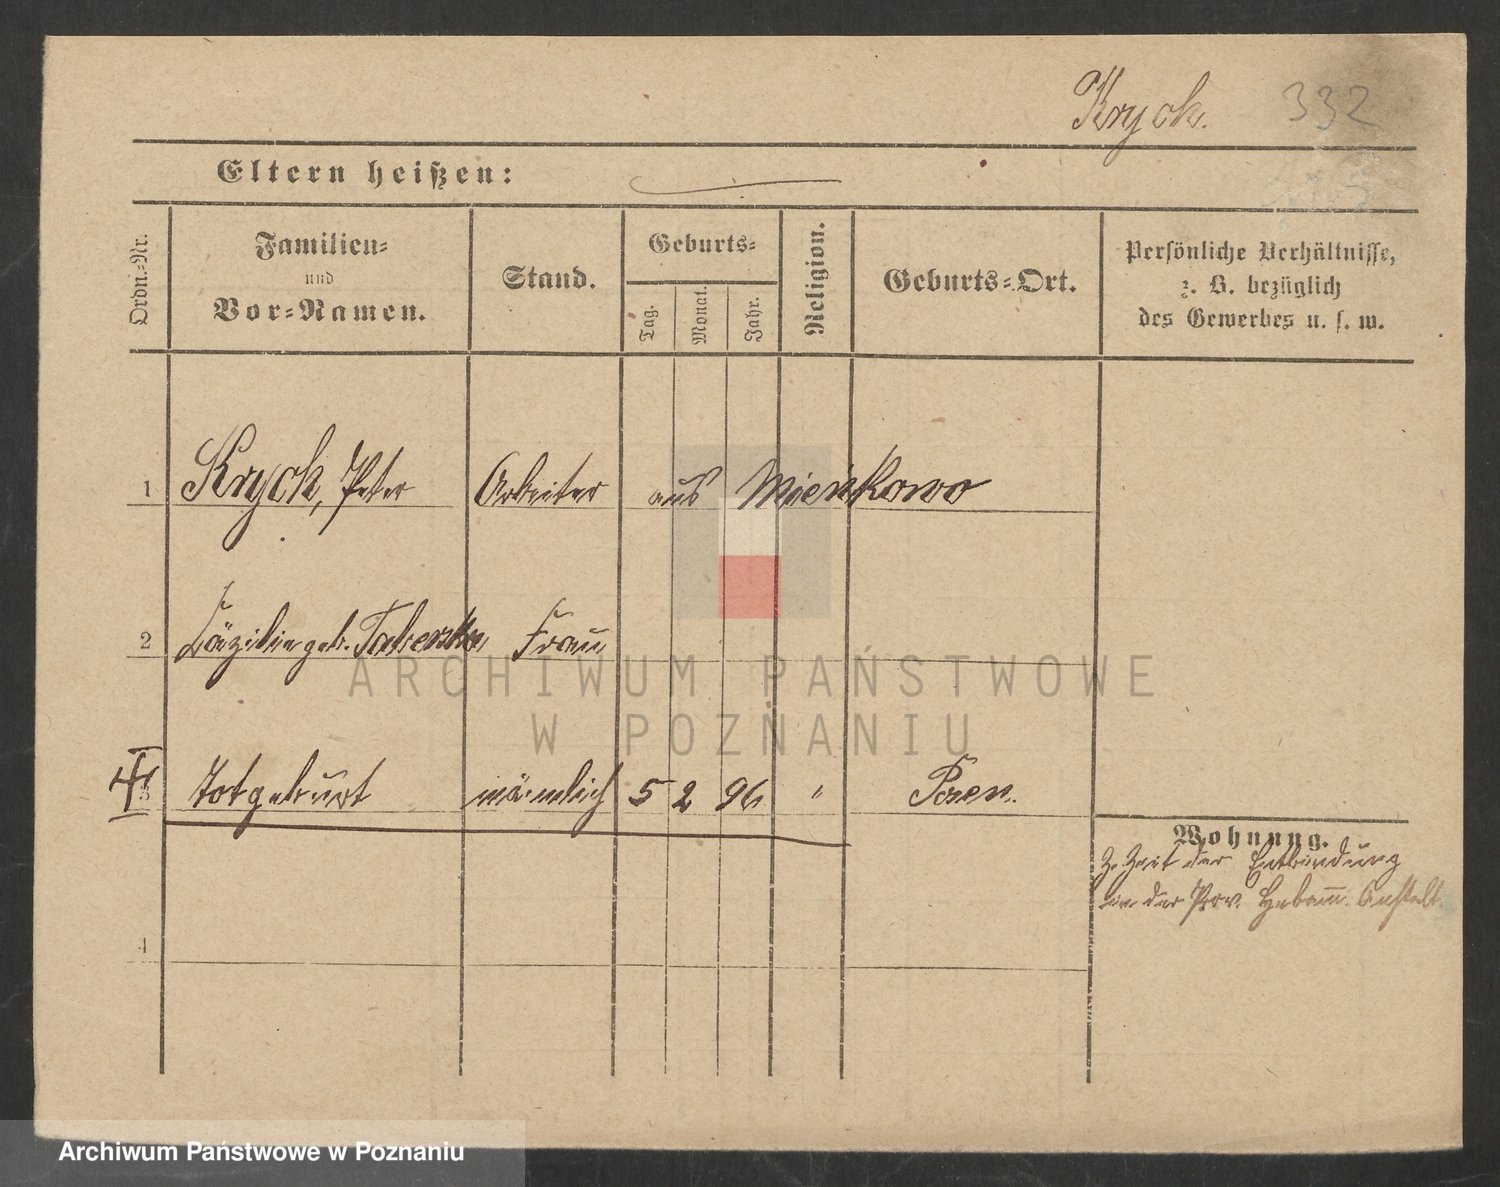 Krych. 332
Eltern heißen:
Ordn.-Nr.
Familien-
und
Vor-Namen.
Stand.
Geburts-
Tag.
Monat.
Jahr.
Religion.
Geburts-Ort.
Persönliche Verhältnisse,
z. B. bezüglich
des Gewerbes u. s. w.
1 Krych, Peter Arbeiter aus Mieńkowo
2 Cäzilie geb. Frau
ARCHIWUM PAŃSTWOWE
W POZNANIU
3 Totgeburt männlich 5 2 96 " Posen.
Wohnung.
z. Zeit der Entbindung
in der Prov. Hebam. Anstalt.
4
Archiwum Państwowe w Poznaniu